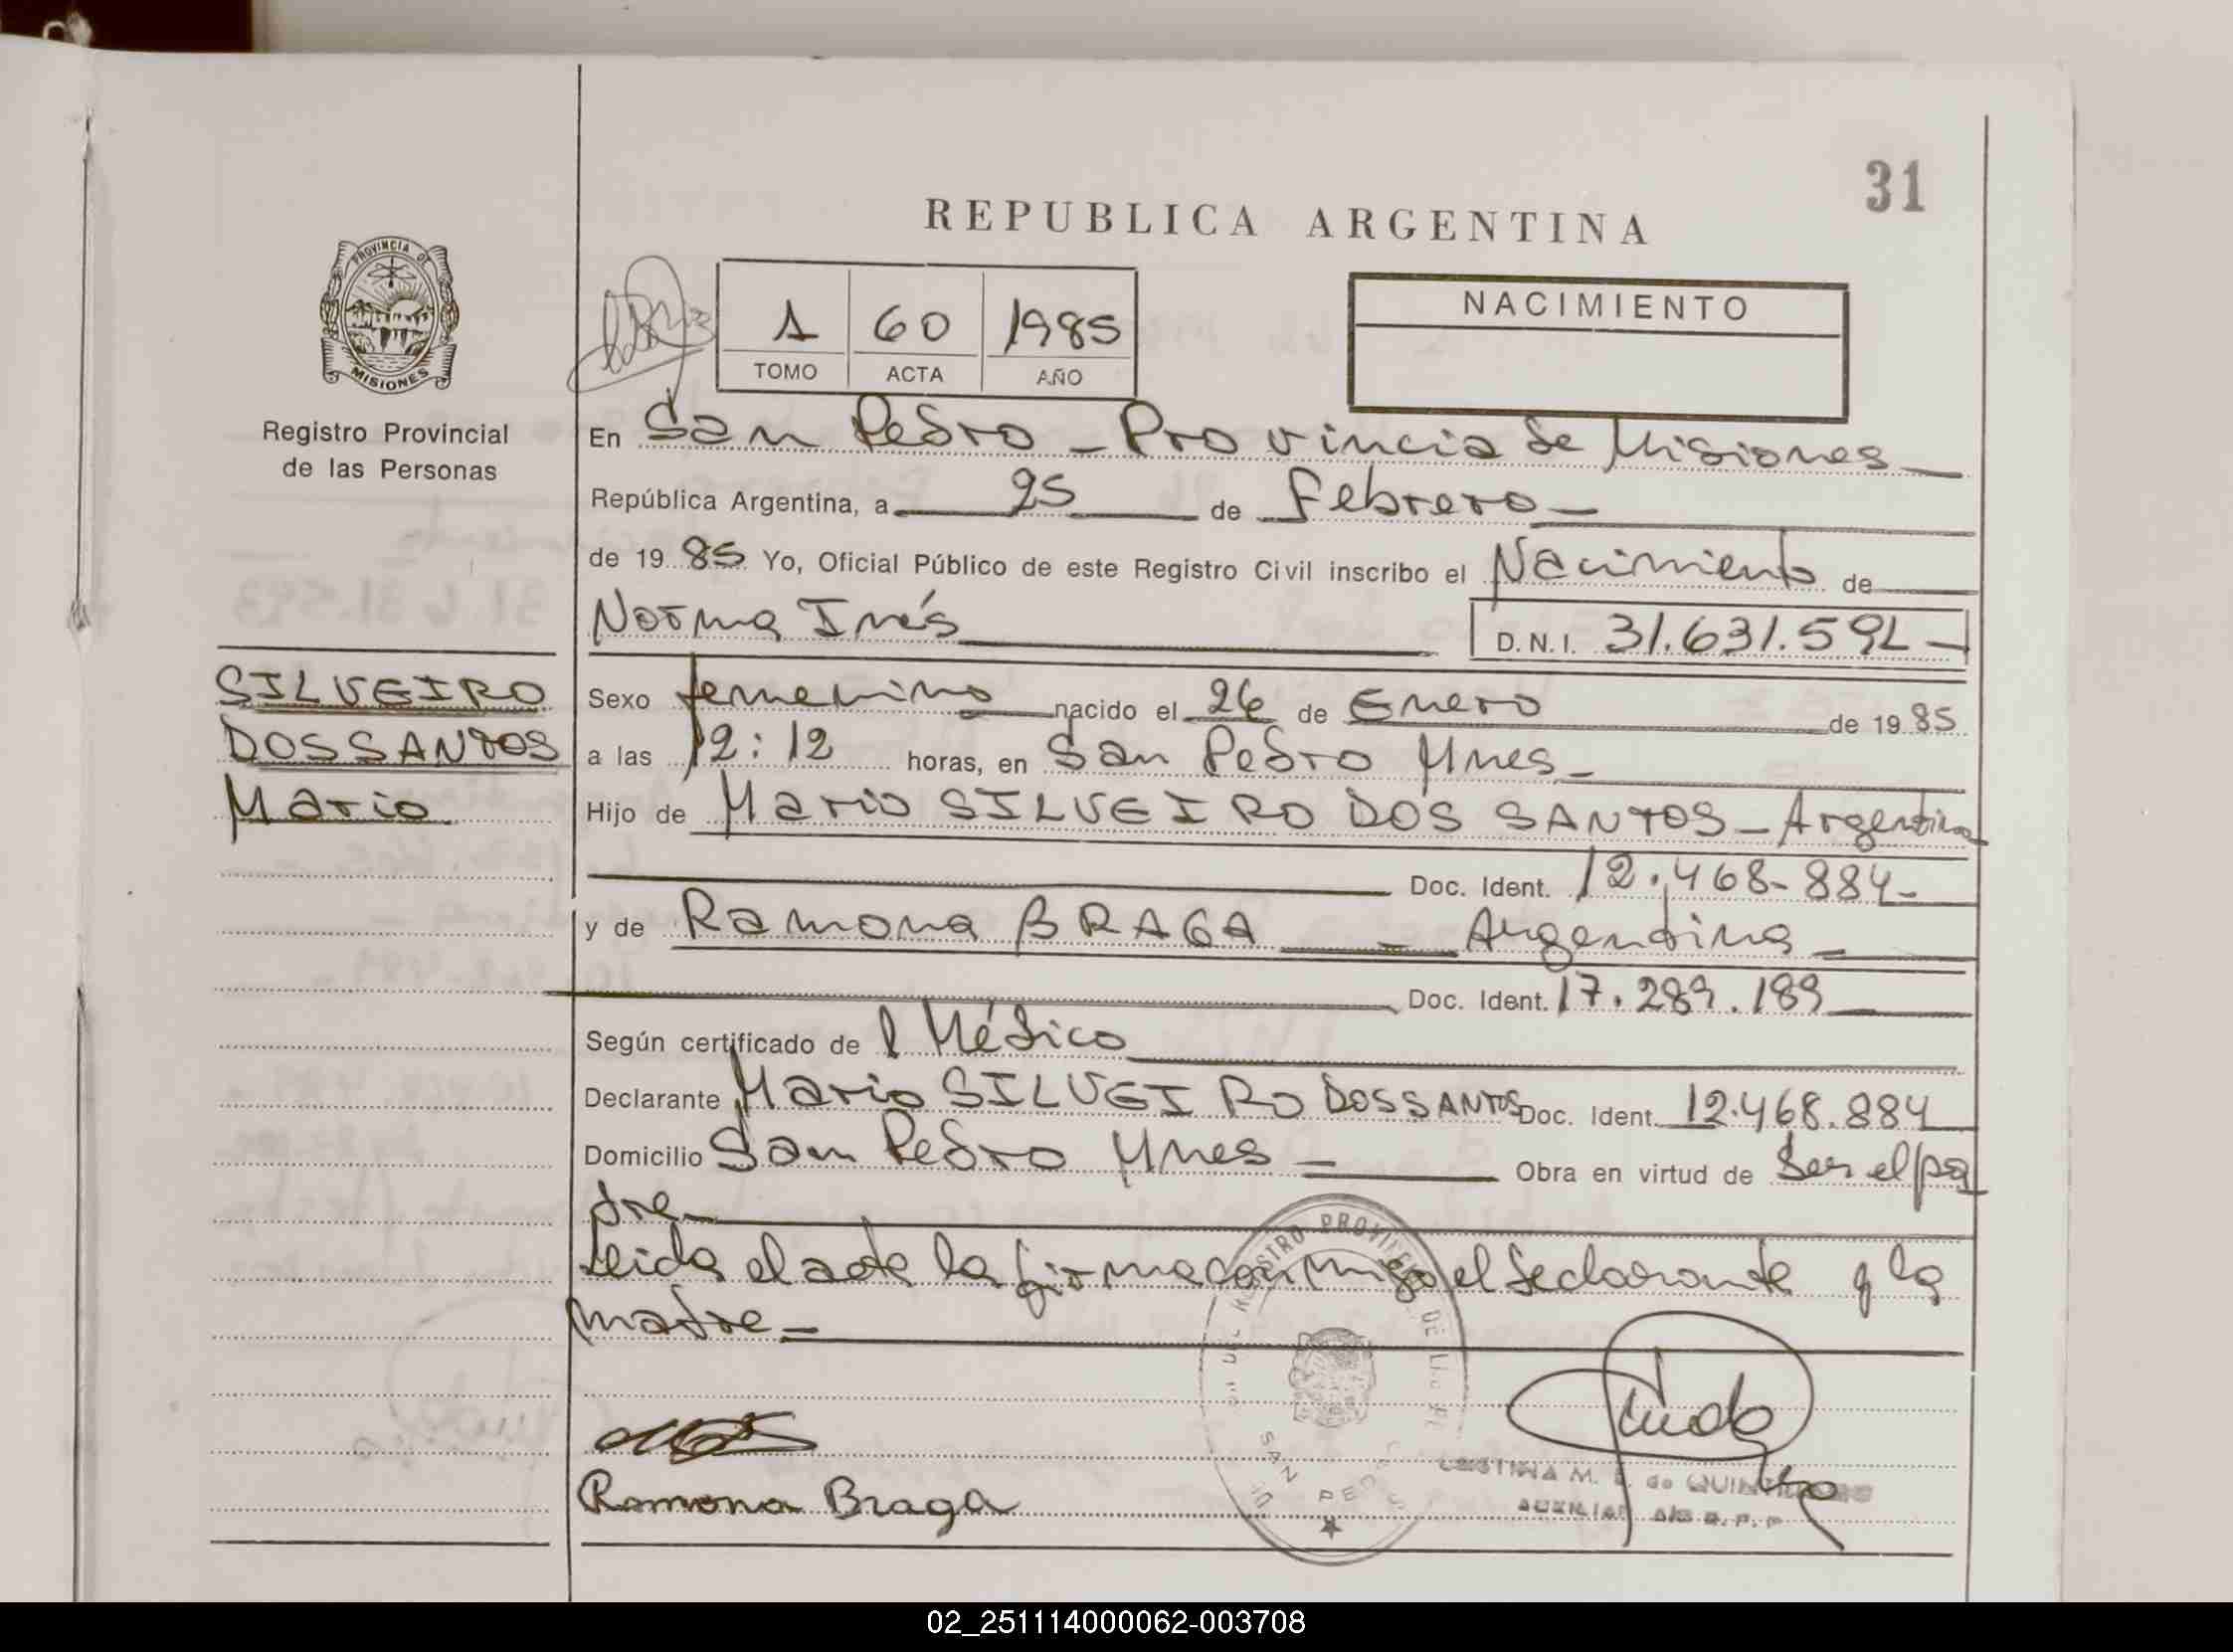 31
REPUBLICA ARGENTINA
PROVINCIA DE
MISIONES
Registro Provincial
de las Personas
1 60 1985
TOMO ACTA AÑO
NACIMIENTO
En San Pedro - Provincia de Misiones
República Argentina, a 25 de Febrero
de 1985 Yo, Oficial Público de este Registro Civil inscribo el Nacimiento de
Norma Inés D.N.I. 31.631.592
SILVEIRO
DOS SANTOS
Mario
Sexo femenino nacido el 26 de Enero de 1985
a las 12:12 horas, en San Pedro Mnes
Hijo de Mario SILVEIRO DOS SANTOS - Argentina
Doc. Ident. 12.468.884
y de Ramona BRAGA - Argentina
Doc. Ident. 17.289.189
Según certificado de l Médico
Declarante Mario SILVEIRO DOS SANTOS Doc. Ident. 12.468.884
Domicilio San Pedro Mnes - Obra en virtud de Ser el pa
dre
Leida el acta la firma conmigo el declarante y la
madre
REGISTRO PROVINCIAL DE LAS
SAN PEDRO
Ramona Braga
AUXILIAR
02_251114000062-003708